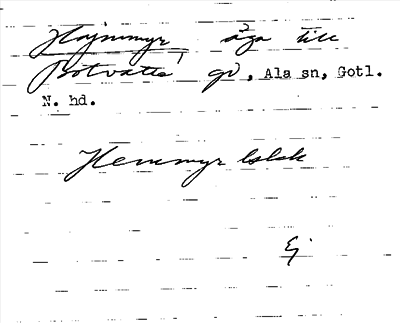 Hajnmyr, äga till
Botvatte gd, Ala sn, Gotl.
N. hd.
Hemmyr lslsk
Ej